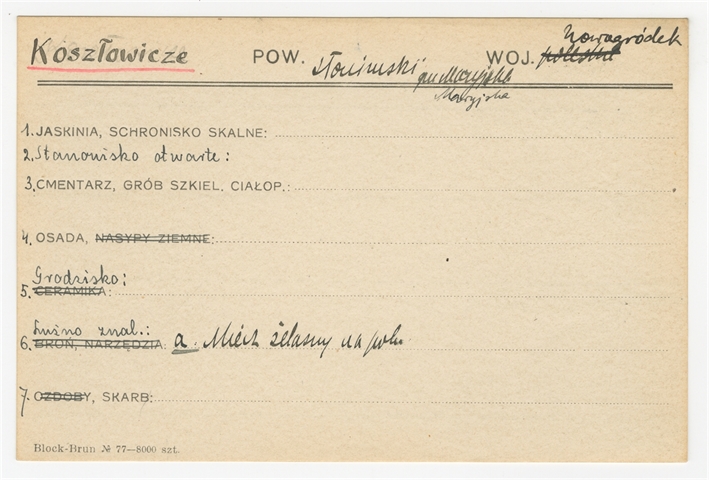 Koszłowicze POW. Słonimski WOJ. Nowogródek
Maryjska
1. JASKINIA, SCHRONISKO SKALNE:
2. Stanowisko otwarte:
3. CMENTARZ, GRÓB SZKIEL. CIAŁOP.:
4. OSADA, NASYPY ZIEMNE:
Grodzisko:
5. CERAMIKA:
Luźno znal.:
6. BROŃ, NARZĘDZIA: a. Miecz żelazny na polu
7. OZDOBY, SKARB:
Block-Brun № 77—8000 szt.